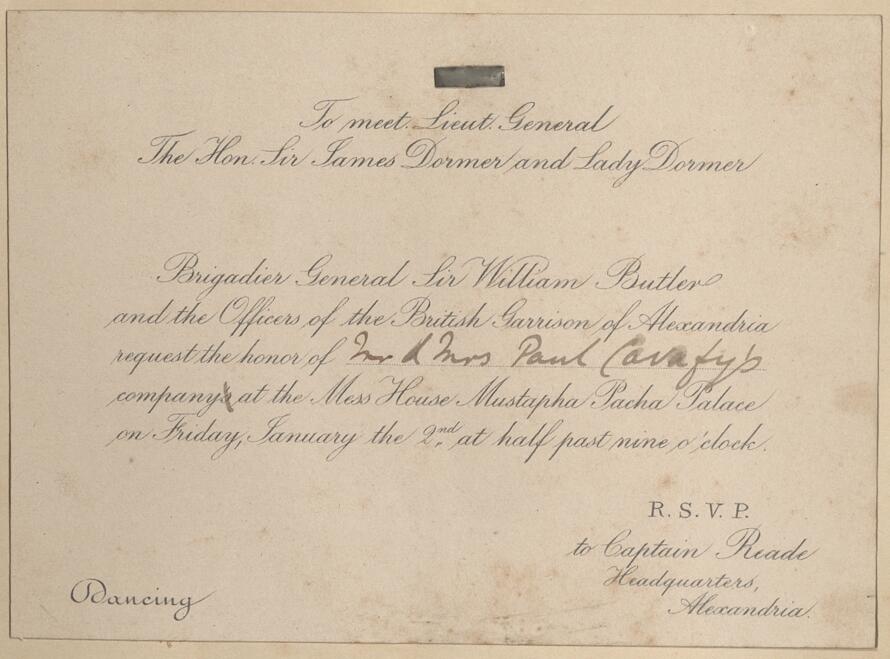 To meet Lieut. General
The Hon. Sir James Dormer and Lady Dormer
Brigadier General Sir William Butler
and the Officers of the British Garrison of Alexandria
request the honor of Mr & Mrs Paul Cavafy's
company at the Mess House Mustapha Pacha Palace
on Friday, January the 2nd. at half past nine o'clock.
R. S. V. P.
to Captain Reade
Headquarters,
Alexandria.
Dancing